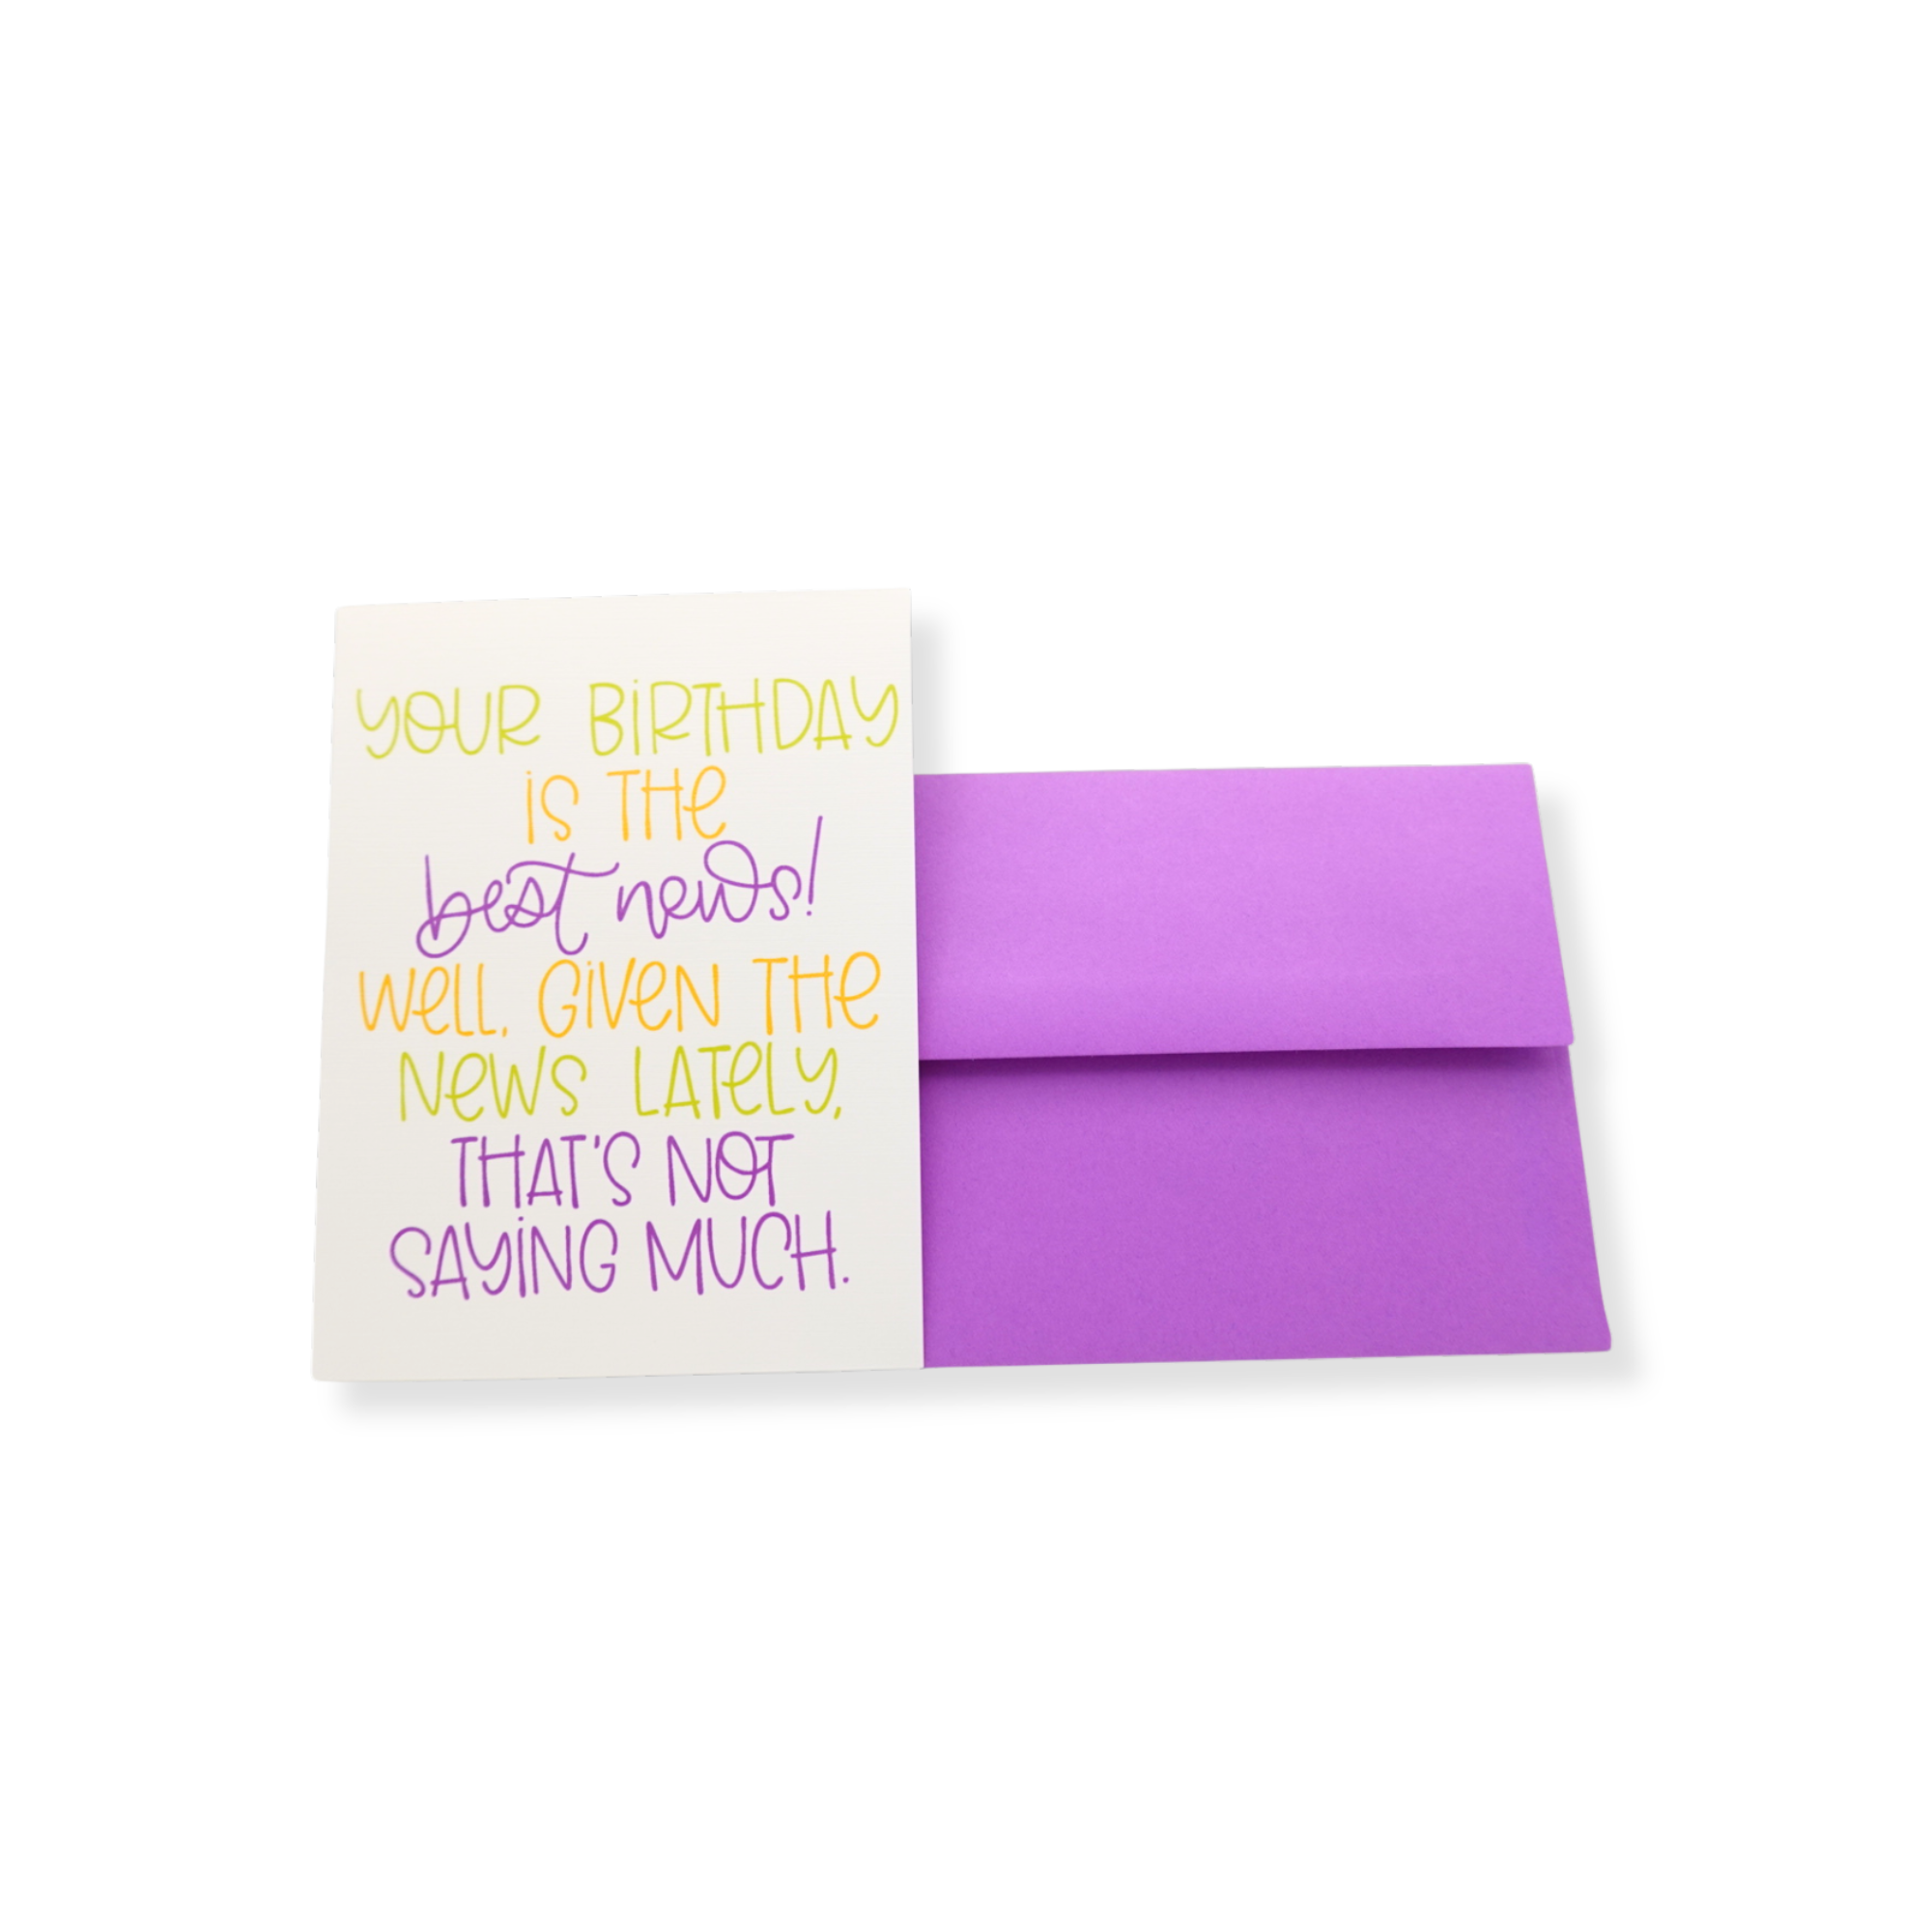 YOUR BIRTHDAY
IS THE
best news!
WELL, GIVEN THE
NEWS LATELY,
THAT'S NOT
SAYING MUCH.